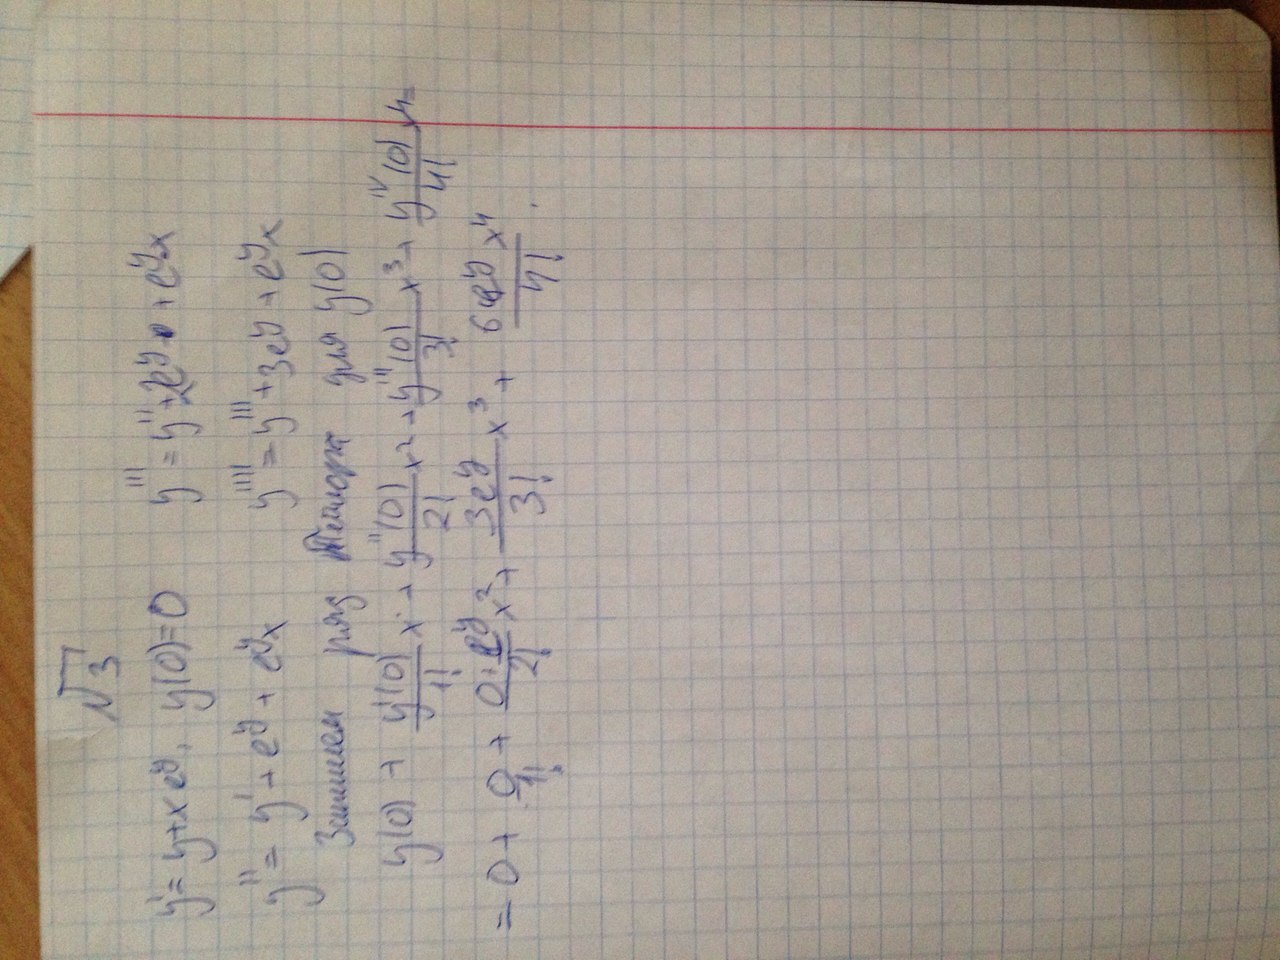 √3
y' = y + xe^y, y(0) = 0    y''' = y'' + 2e^y + e^y x
y'' = y' + e^y + e^y x    y'''' = y''' + 3e^y + e^y x
Запишем ряд Тейлора для y(0)
y(0) + y'(0)/1! x + y''(0)/2! x² + y'''(0)/3! x³ + y^IV(0)/4! x⁴ =
= 0 + 0/1! + 0 + e^y/2! x² + 3e^y/3! x³ + 6e^y/4! x⁴